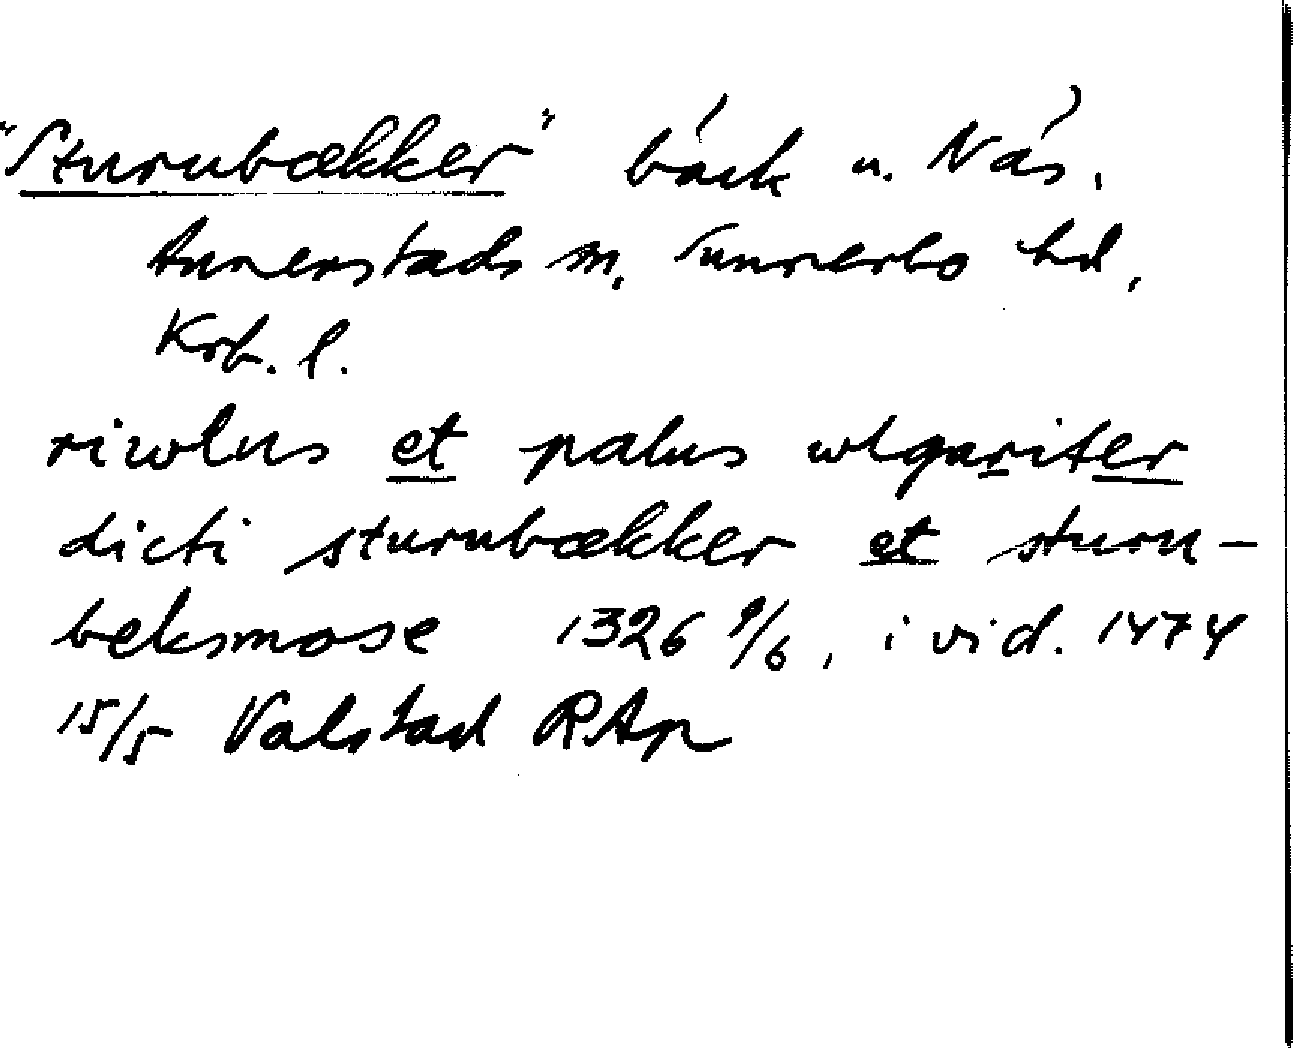 "Sturnbækker" bäck u. Näs,
Annerstads sn, Sunnerbo hd,
Krb. l.
riwlus et palus wlgariter
dicti sturnbækker et sturn-
beksmose 1326 9/6, i vid. 1474
15/5 Valstad RAp